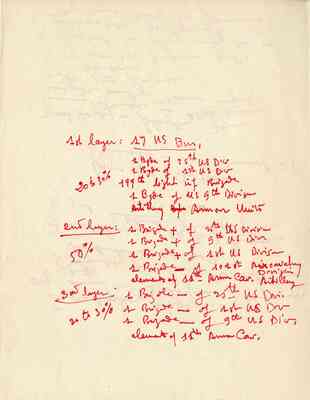 1st layer: 17 US Bns,
1 Bgde of 25th US Div
1 Bgde of 1st US Div
20 to 30% 199th light inf Brigade
1 Bgde of US 9th Division
Artillery Armor Units
2nd layer: 1 Brigade + of 25th US Division
1 Brigade + of 9th US Div
50% 1 Brigade + of 1st US Division
1 Brigade — of 101st Division
elements of 11th Armor Cav. Artillery
3rd layer: 1 Brigade — of 25th US Div.
20 to 30% 1 Brigade — of 1st US Div
1 Brigade — of 9th US Div,
element of 11th Armor Cav.